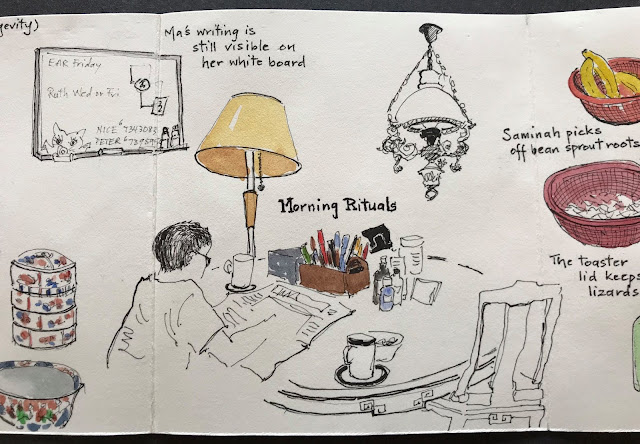 gevity)
Ma's writing is
still visible on
her white board
EAR Friday
Ruth Wed or Fri
NICE
PETER
Morning Rituals
Saminah picks
off bean sprout roots
The toaster
lid keeps
lizards